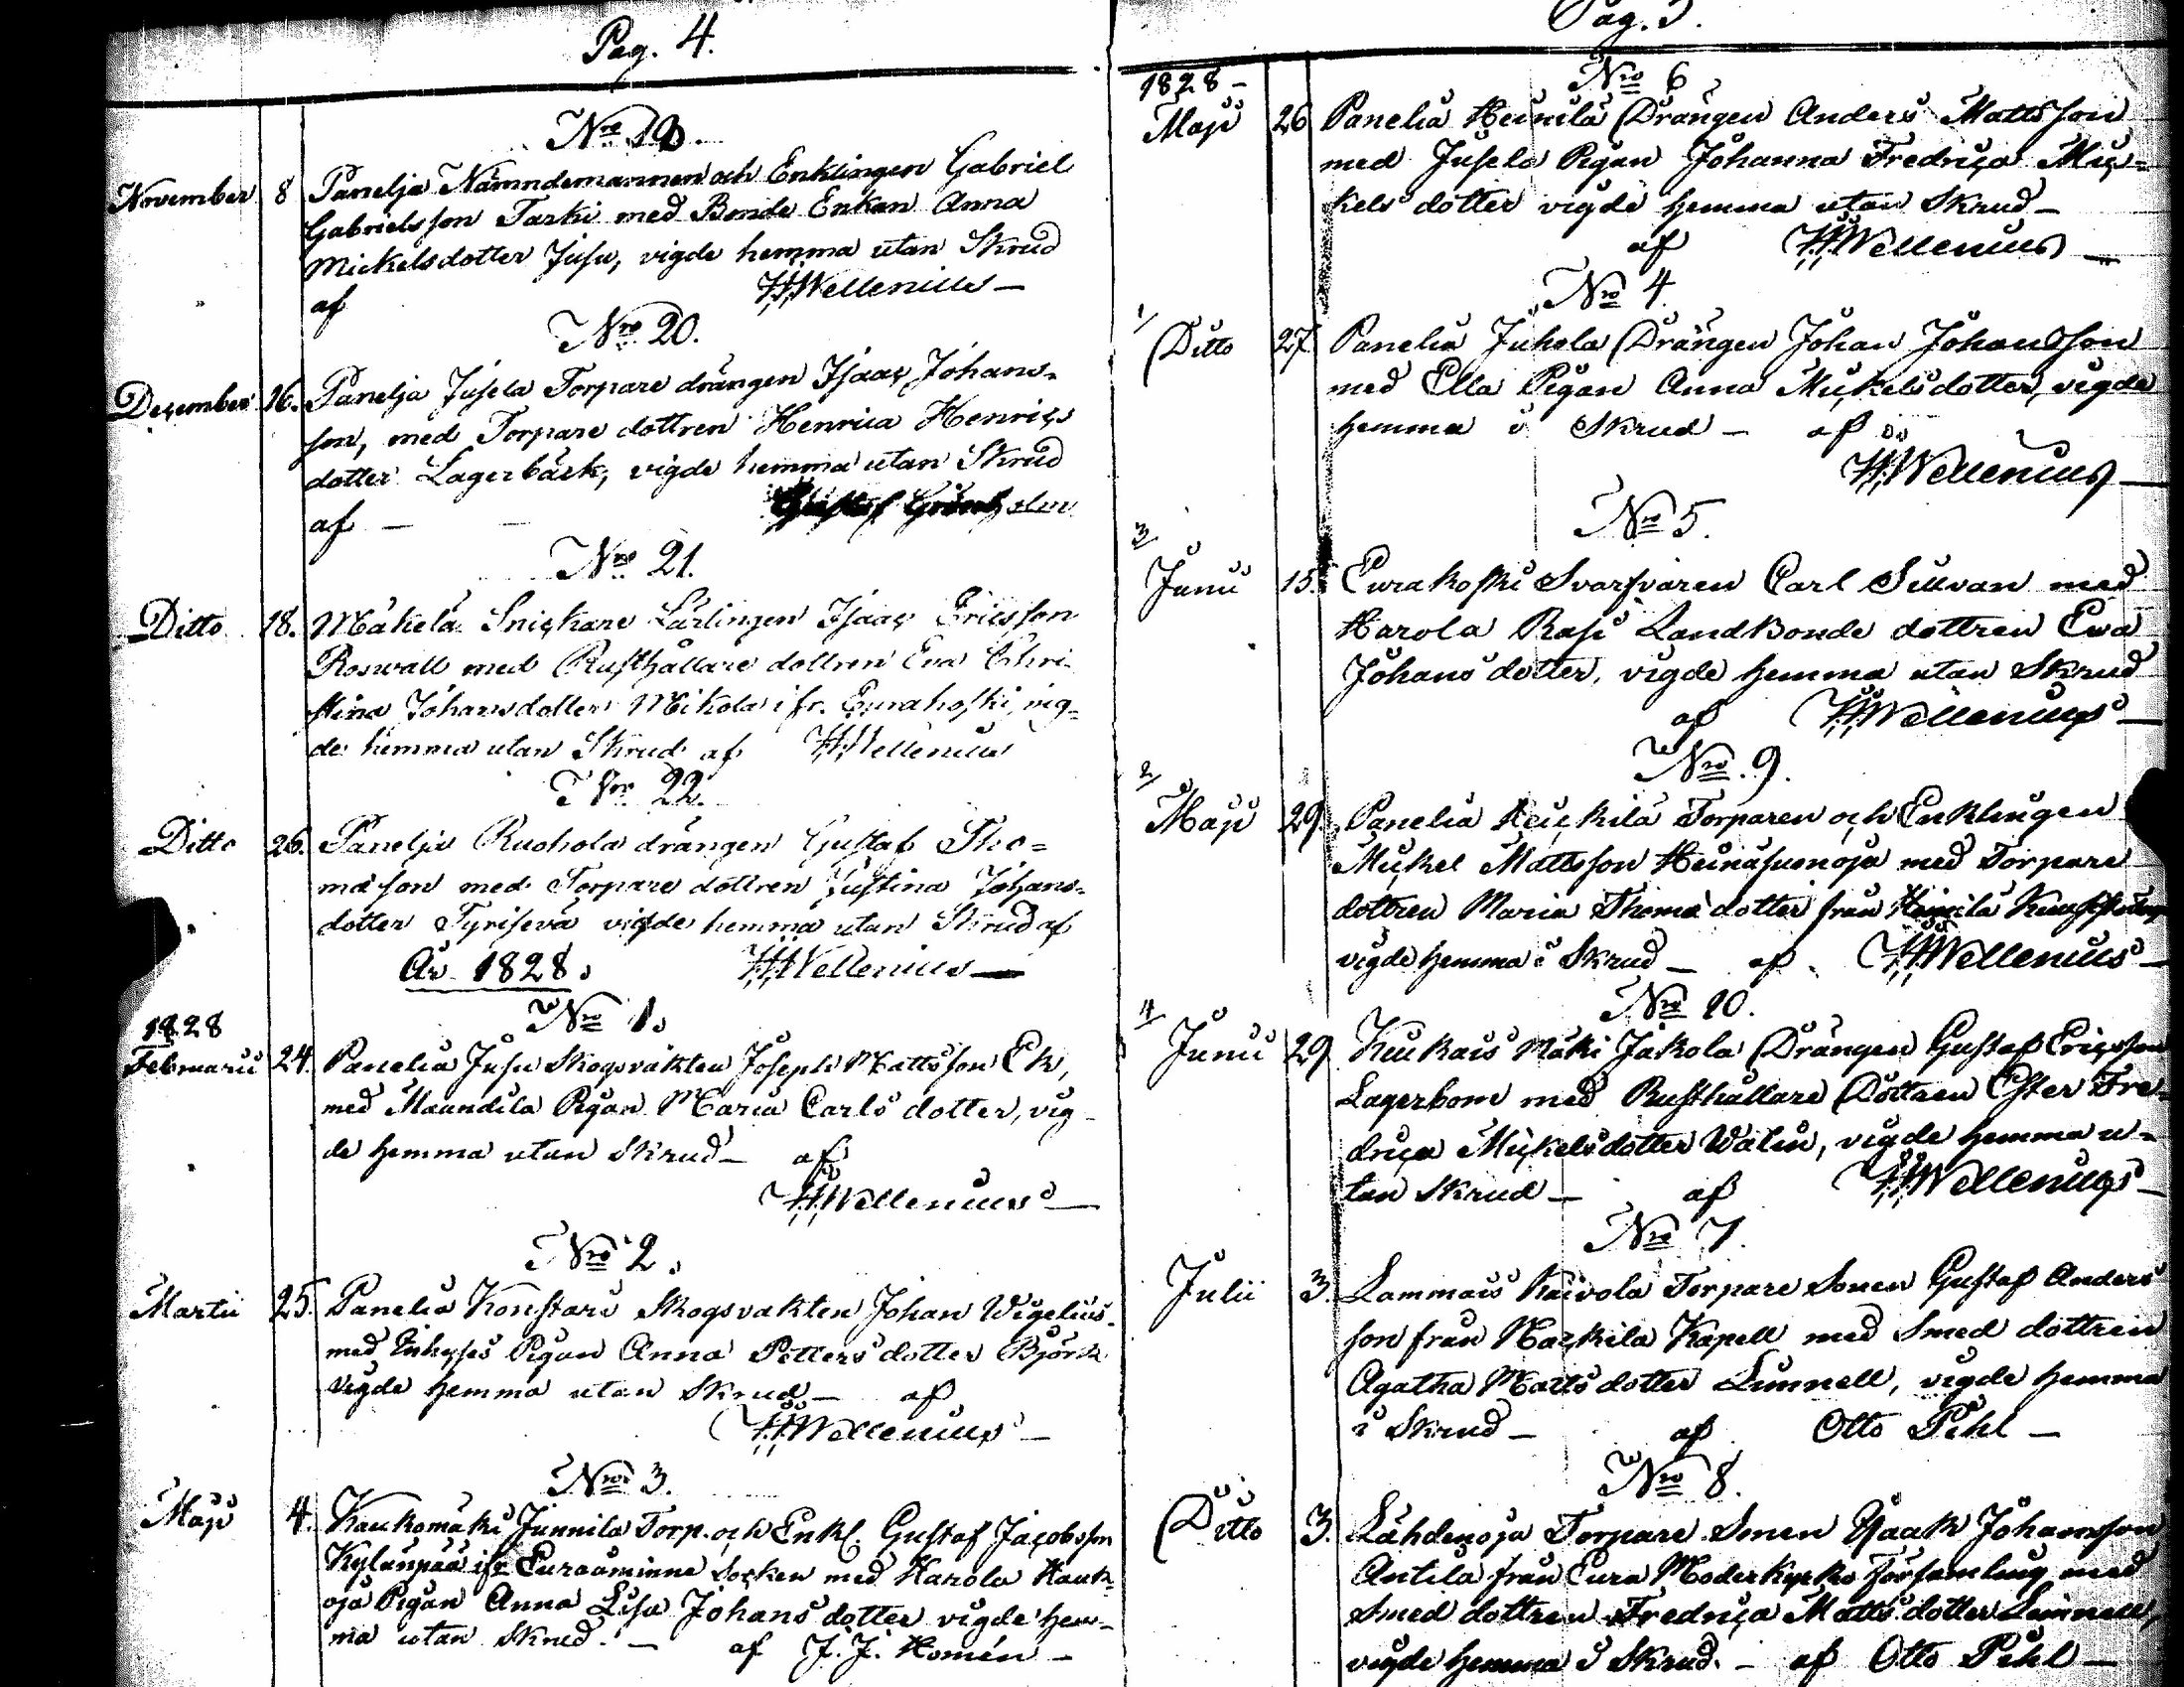 Pag. 4.
Nro 19.
November 8 Panelja Nämndemannen och Enklingen Gabriel
Gabrielsson Tarki med Bonde Enkan Anna
Mickelsdotter Jusu, vigde hemma utan Skrud
af HWellenius –
Nro 20.
December 16. Panelja Jusela Torpare drängen Isaac Johans=
son, med Torpare dottren Henrica Henrics
dotter Lagerbäck, vigde hemma utan Skrud
af – Gustaf
Nro 21.
Ditto 18. Mäkelä Snickare Lärlingen Isaac Ericsson
Roswall med Rusthållare dottren Eva Chri
stina Johansdotter Mikola ifr. Eurakoski, vig=
de hemma utan Skrud af HWellenius
Nro 22.
Ditto 26. Panelja Ruohola drängen Gustaf Tho=
mæson med Torpare dottren Justina Johans=
dotter Tyrisevä vigde hemma utan Skrud af
År 1828. HWellenius –
Nro 1.
1828
Februarii 24. Panelia Jusu Skogsvakten Joseph Mattsson Ek,
med Maundila Pigan Maria Carls dotter, vig
de hemma utan Skrud – af
HWellenius –
Nro 2.
Martii 25. Panelia Konstari Skogsvakten Johan Wigelius
med Pigan Anna Petters dotter Björk
vigde hemma utan Skrud – af
HWellenius –
Nro 3.
Maji 4. Kaukomäki Junnila Torp. och Enkl. Gustaf Jacobsson
Kylänpää ifr Euraåminne Socken med Harola Hauk=
oja Pigan Anna Lisa Johans dotter vigde hem=
ma utan Skrud. – af J. J. Homén –
Pag. 5.
1828 –
Nro 6
Maji 26 Panelia Heinilä Drängen Anders Mattsson
med Jusela Pigan Johanna Fredrica Mic=
kels dotter vigde hemma utan Skrud –
af HWellenius –
Nro 4
1/
Ditto 27. Panelia Juhola Drängen Johan Johansson
med Ella Pigan Anna Mickelsdotter, vigde
hemma i Skrud – af
HWellenius –
Nro 5.
3/
Junii 15. Eurakoski Svarfvaren Carl Sillvan med
Harola Rasi Landbonde dottren Eva
Johans dotter, vigde hemma utan Skrud
af HWellenius –
Nro. 9.
2/
Maji 29. Panelia Heickilä Torparen och Enklingen
Mickel Mattsson Heinäsuonoja med Torpare
dottren Maria Thomæ dotter från Heinilä
vigde hemma i Skrud – af HWellenius –
Nro 10.
4/
Junii 29 Kiukais Mäki Jakola Drängen Gustaf Ericsson
Lagerbom med Rusthållare Dottren Ester Fre=
drica Mickelsdotter Walin, vigde hemma u=
tan Skrud – af HWellenius –
Nro 7.
Julii 3. Lammais Kaivola Torpare Sonen Gustaf Anders
son från Kapell med Smed dottren
Agatha Matts dotter Linnell, vigde hemma
i Skrud – af Otto Pihl –
Nro 8.
Ditto 3. Lähdenoja Torpare Sonen Isaak Johansson
Antila från Eura Moderkyrko Församling med
Smed dottren Fredrica Matts dotter Linnell,
vigde hemma i Skrud. – af Otto Pihl –